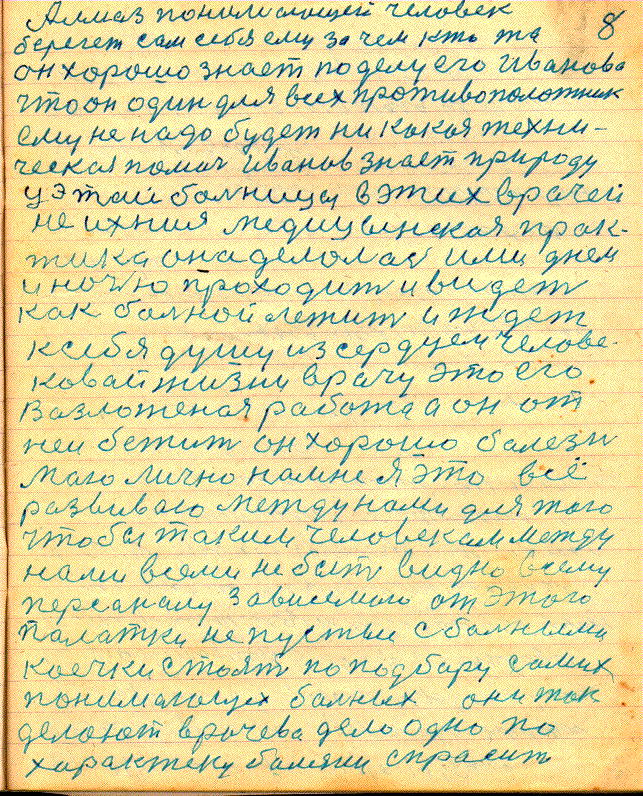 Алмаз понимающей человек
8
берегет сам себя ему зачем кто та
он хорошо знает по делу его Иванова
что он один для всех противоположник
ему не надо будет ни какая техни-
ческая помоч Иванов знает природу
у этай болници в этих врачей
не ихния медицынская прак-
тика она делолас ими днем
и ночю проходит и видет
как болной лежит и ждет
к себя душу из сердцем челове-
ковай жизни врачу это его
возложеная работа а он от
неи бежит он хорошо болезн
маю лично на мне я это всё
развиваю между нами для того
чтобы таким человекам между
нами всеми не быть видно всему
персаналу зависемаю от этого
палатки не пустые с болными
коечки стоят по подбару самих
понимающех болных они так
делоют врачева дело одно по
характеку болями спрасит